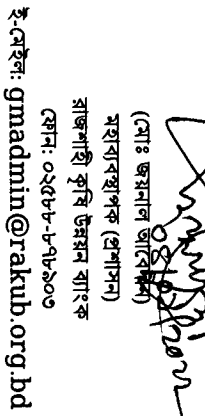 (মোঃ জয়নাল আবেদীন)
মহাব্যবস্থাপক (প্রশাসন)
রাজশাহী কৃষি উন্নয়ন ব্যাংক
ফোন: ০২৫৮৮-৮৭৮৯০৩
ই-মেইল: gmadmin@rakub.org.bd